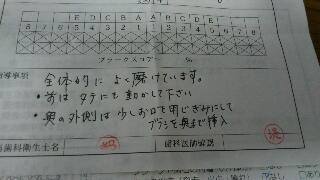 E D C B A A B C D E
8 7 6 5 4 3 2 1 1 2 3 4 5 6 7 8
プラークスコアー %
導事項
全体的に よく磨けています。
・前は タテにも動かして下さい
・奥の外側は 少しお口を閉じぎみにして
ブラシを奥まで挿入
歯科衛生士名
歯科医師確認